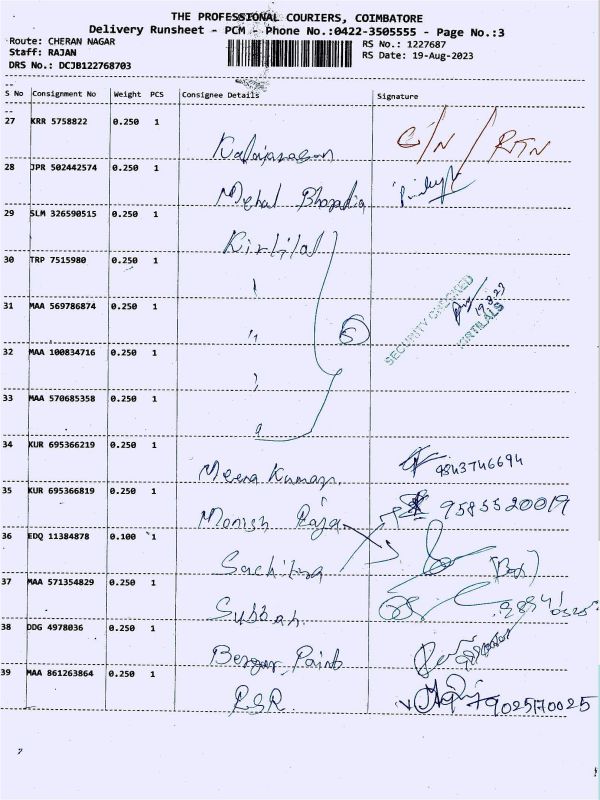 THE PROFESSIONAL COURIERS, COIMBATORE
Delivery Runsheet - PCM - Phone No.:0422-3505555 - Page No.:3
Route: CHERAN NAGAR
RS No.: 1227687
Staff: RAJAN
RS Date: 19-Aug-2023
DRS No.: DCJB122768703
S No Consignment No Weight PCS Consignee Details Signature
27 KRR 5758822 0.250 1
C/N / RTN
28 JPR 502442574 0.250 1
Mehul
29 SLM 326590515 0.250 1
Kirtilal
30 TRP 7515980 0.250 1
31 MAA 569786874 0.250 1
" 5
SECURITY CHECKED
19.8.23
KIRTILALS
32 MAA 100834716 0.250 1
33 MAA 570685358 0.250 1
34 KUR 695366219 0.250 1
Meera Kumar. 9843746694
35 KUR 695366819 0.250 1
Monish Raja 9585520019
36 EDQ 11384878 0.100 1
37 MAA 571354829 0.250 1
38 DDG 4978036 0.250 1
Berger Paint
39 MAA 861263864 0.250 1
RSR. 7902570025